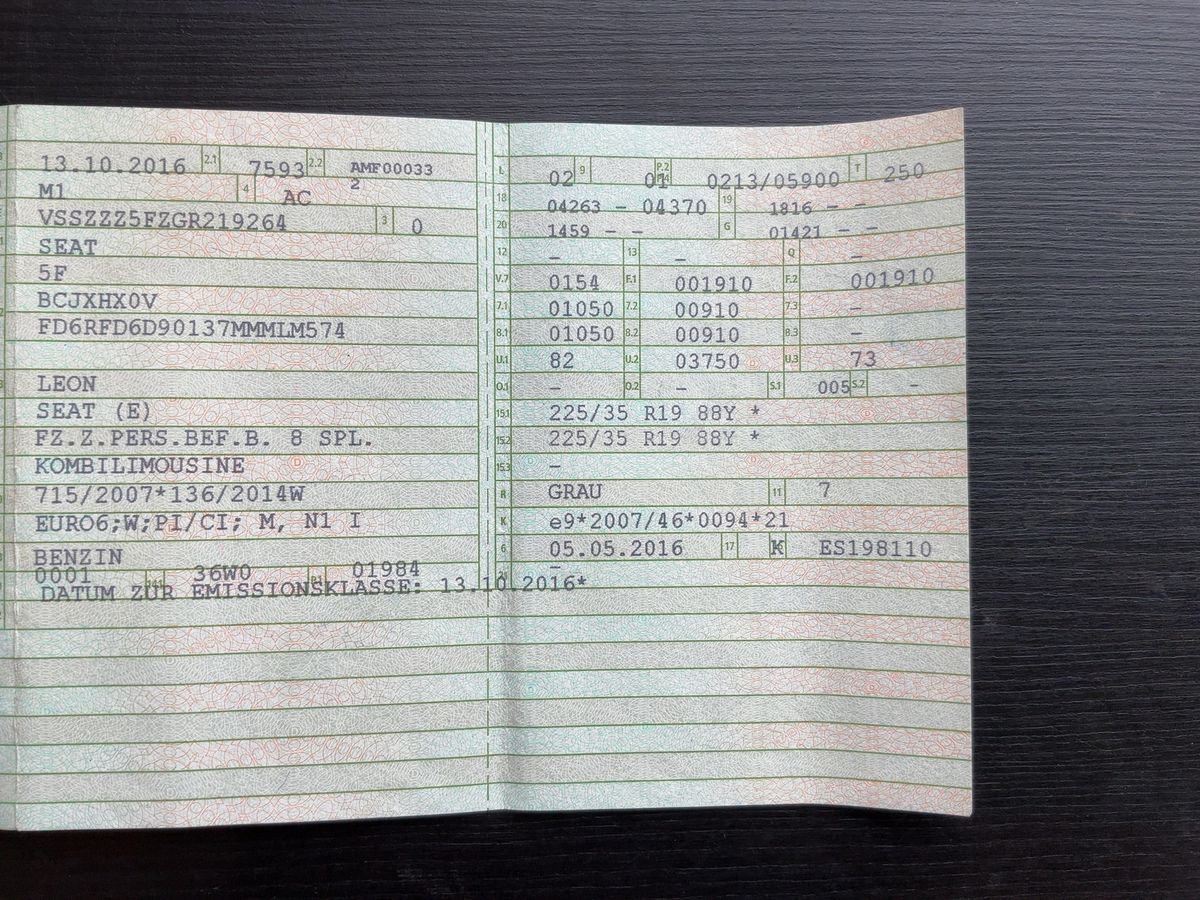 13.10.2016 2.1 7593 2.2 AMF00033
2
M1 4 AC
VSSZZZ5FZGR219264 3 0
SEAT
5F
BCJXHX0V
FD6RFD6D90137MMMLM574
LEON
SEAT (E)
FZ.Z.PERS.BEF.B. 8 SPL.
KOMBILIMOUSINE
715/2007*136/2014W
EURO6;W;PI/CI; M, N1 I
BENZIN
0001 36W0 01984
DATUM ZUR EMISSIONSKLASSE: 13.10.2016*
L 02 9 01 P.2 0213/05900 T 250
18 04263 - 04370 19 1816 - -
20 1459 - - G 01421 - -
12 - 13 - Q -
V.7 0154 F.1 001910 F.2 001910
7.1 01050 7.2 00910 7.3 -
8.1 01050 8.2 00910 8.3 -
U.1 82 U.2 03750 U.3 73
O.1 - O.2 - S.1 005 S.2 -
15.1 225/35 R19 88Y *
15.2 225/35 R19 88Y *
15.3 -
R GRAU 11 7
K e9*2007/46*0094*21
6 05.05.2016 17 K ES198110
-